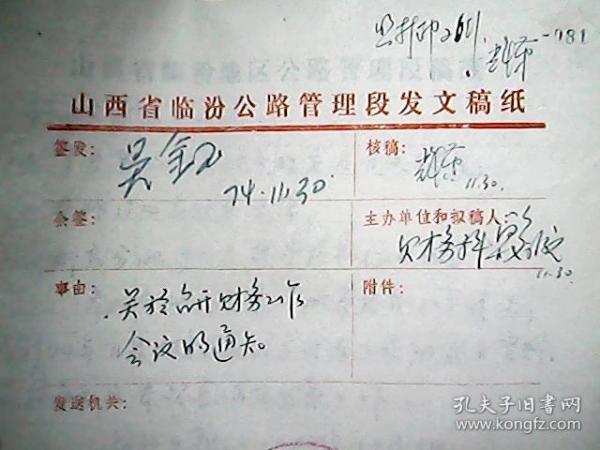 781
山西省临汾公路管理段发文稿纸
签发:
吴
74.11.30
核稿:
11.30.
会签:
主办单位和拟稿人:
财务科
11.30.
事由:
关于召开财务工作
会议的通知
附件:
发送机关:
孔夫子旧书网
www.kongfz.com